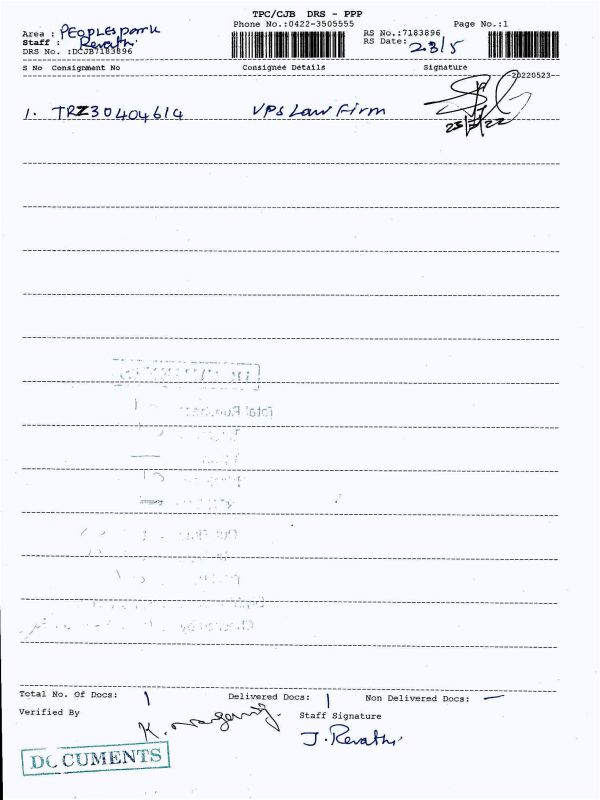 TPC/CJB DRS - PPP
Phone No.:0422-3505555
Page No.:1
Area : PEOPLES Park
RS No.:7183896
Staff : Revathi
RS Date: 23/5
DRS No. :DCJB7183896
S No Consignment No Consignee Details Signature
20220523--
1. TRZ30404614 VPS Law Firm
Total Run
Total No. Of Docs: 1 Delivered Docs: 1 Non Delivered Docs: —
Verified By Staff Signature
K.
J. Revathi
DOCUMENTS